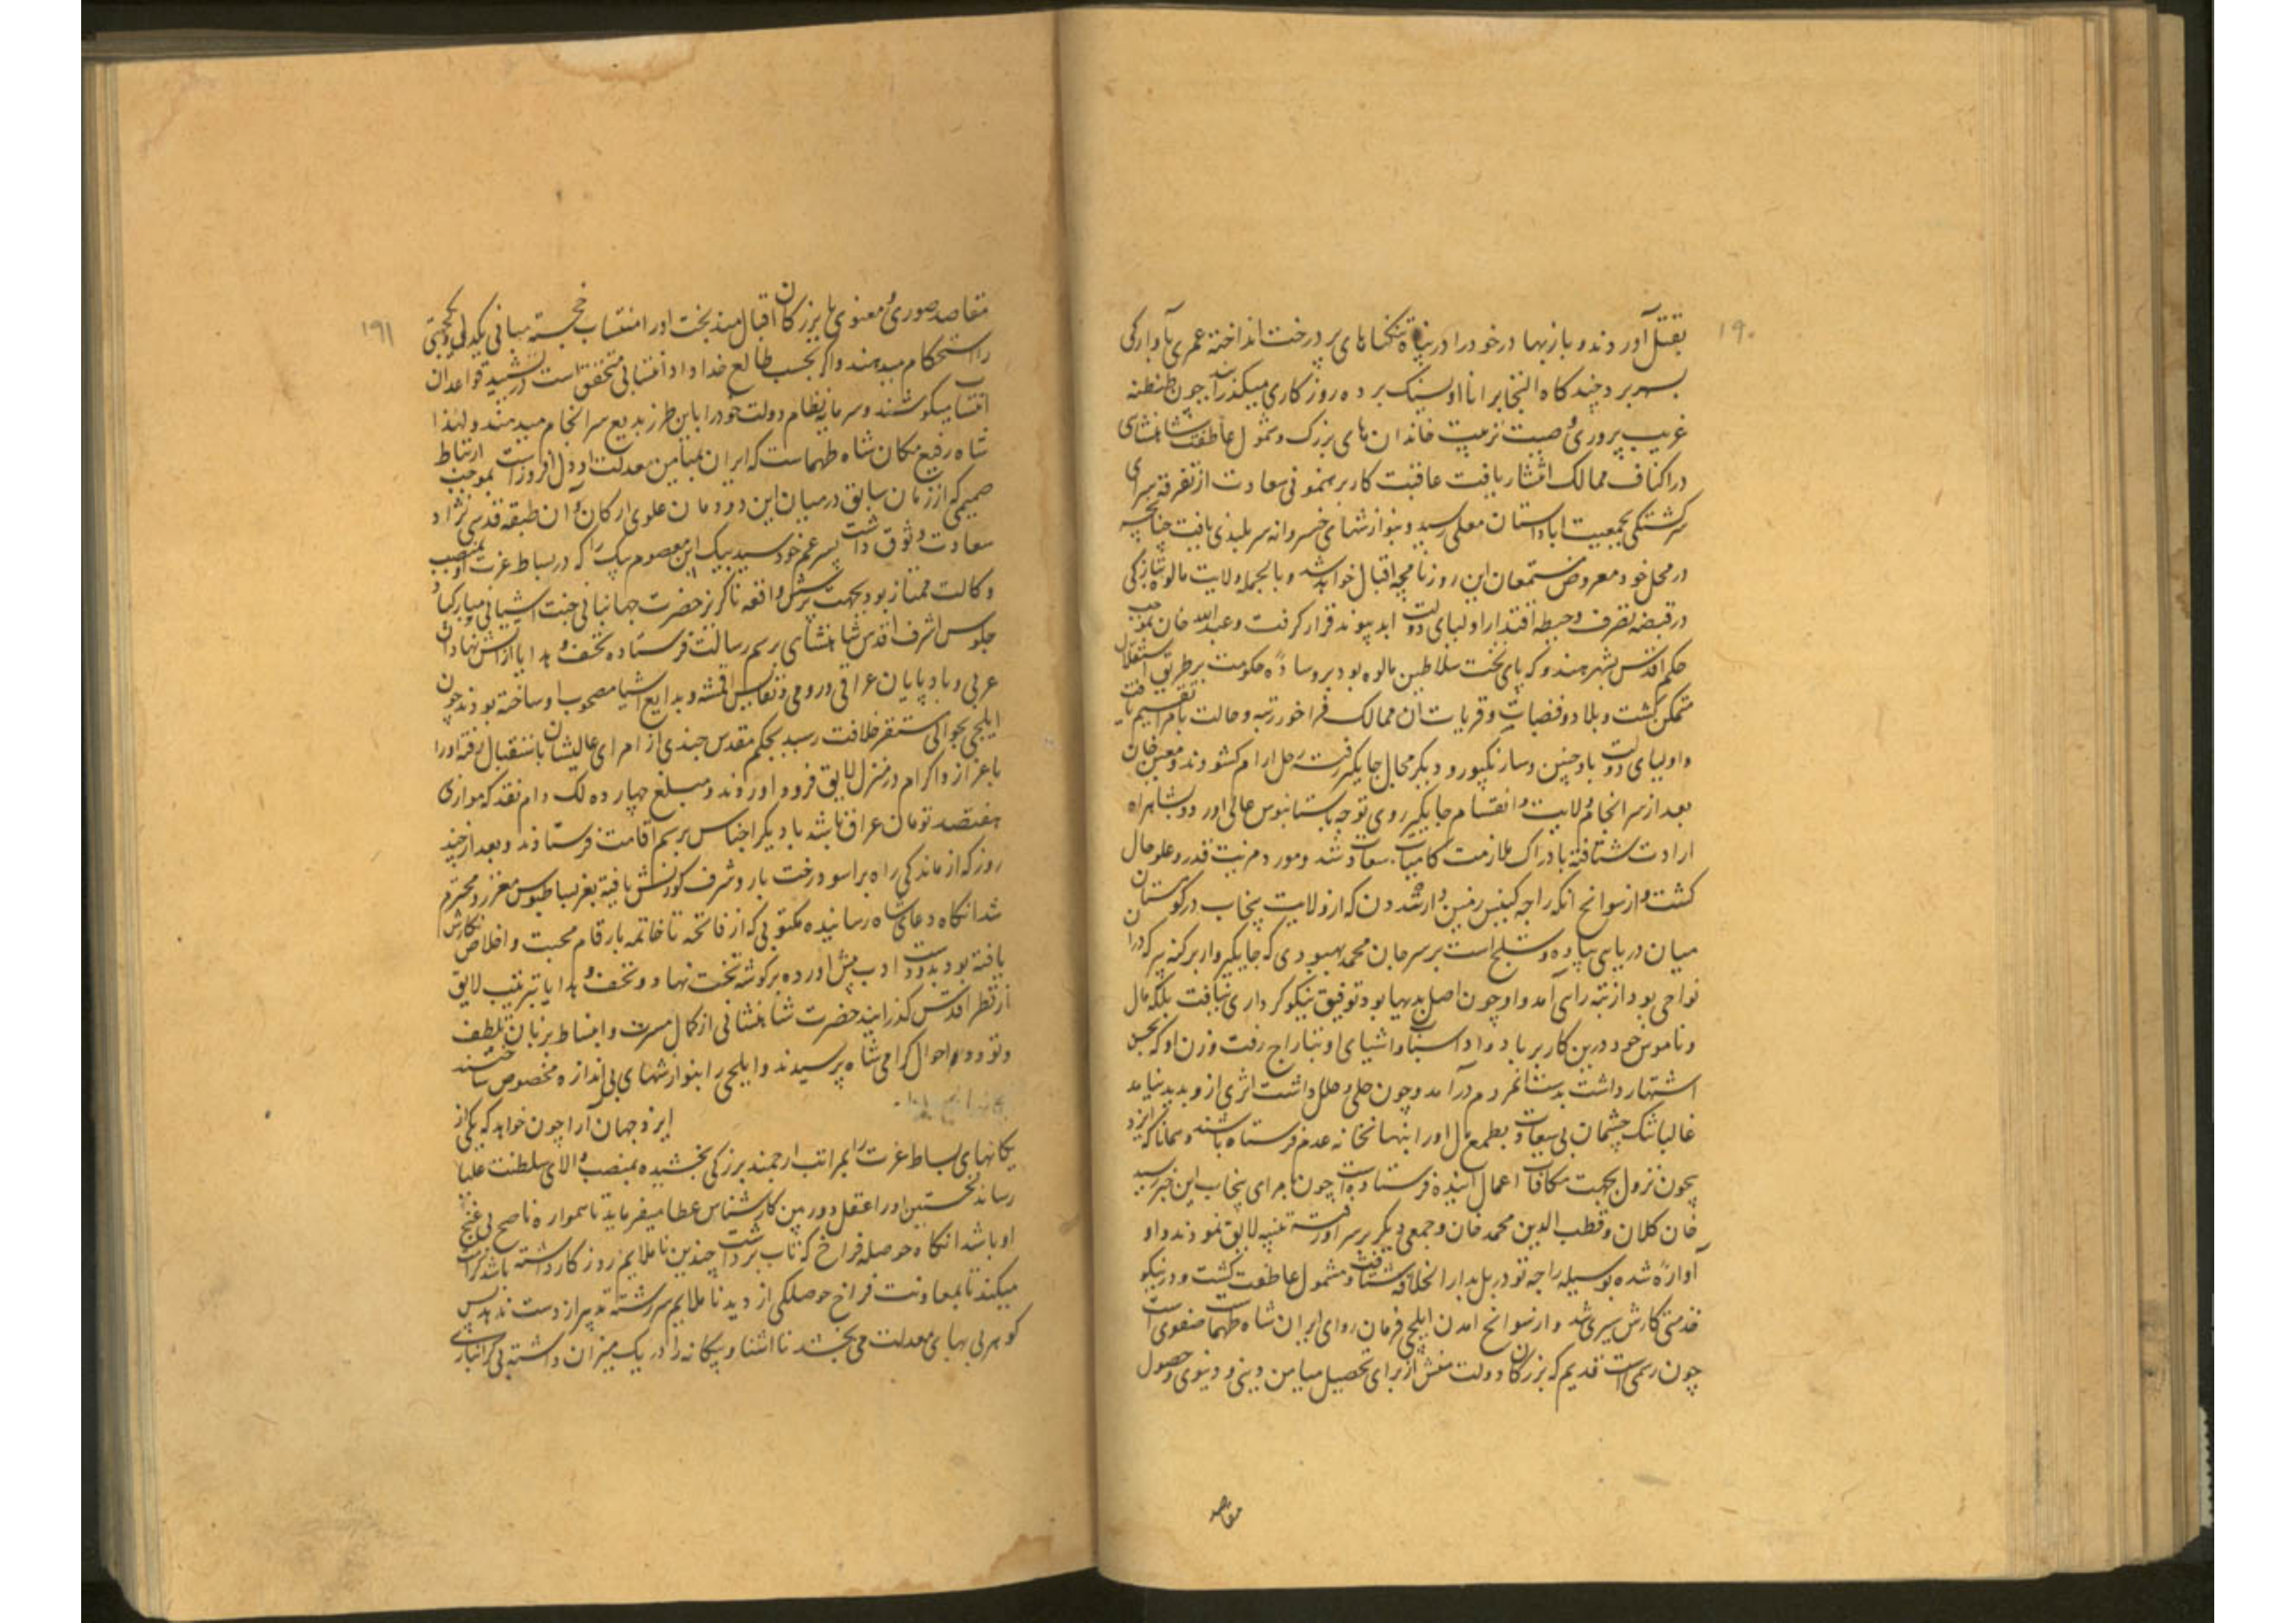 ۱۹۰
بقتل آوردند و بازبهادر خود را در پناه تنکناهای پر درخت انداخته عمری بآوارکی
بسر برد چند کاه التجا برانا اودیسنک برده روزکاری میکذرانید چون طنطنه
غریب پروری و صیت تربیت خاندان های بزرک و شمول عاطفت شاهنشاهی
در اکناف ممالک انتشار یافت عاقبت کار برهنمونی سعادت از تفرقه سرای
سرکشتکی بجمعیت اباد استان معلی رسید و بنوازشهای خسروانه سر بلندی یافت چنانچه
در محل خود معروض مستمعان این روزنامچه اقبال خواهد شد و بالجمله ولایت مالوه بتازکی
در قبضه تصرف و حیطه اقتدار اولیای دولت ابد پیوند قرار کرفت و عبد الله خان بموجب
حکم اقدس بشهر مندو که پای تخت سلاطین مالوه بود بر وساده حکومت بر طریق استقلال
متمکن کشت و بلاد و قصبات و قریات ان ممالک فراخور رتبه و حالت بامرا تقسیم یافت
و اولیای دولت باوجین و سارنکپور و دیکر محال جایکیر رفته رحل ارام کشودند و معین خان
بعد از سر انجام ولایت و انقسام جایکیر روی توجه باستانبوس عالی اورد و بشاهراه
ارادت شتافته بادراک ملازمت کامیاب سعادت شد و مورد مزیت قدر و علو حال
کشت و از سوانح انکه راجه کنیس رفتن دارشدون که از ولایت پنجاب در کوهستان
میان دریای بیاده و ستلج است بر سر جان محمد بهسودی که جایکیردار برکنه بود که درا
نواحی بود از تبه رای آمد و او چون اصل بدیها بود توفیق نیکو کرداری نیافت بلکه مال
و ناموس خود درین کار بر باد داد اسباب و اشیای او بتاراج رفت و زن او که بحسن
اشتهار داشت بدست انمردم در آمد و چون حلی و حلل داشت اثری از و پدید نیامد
غالبا تنک چشمان بی سعادت بطمع مال اورا بنهانخانه عدم فرستاده باشند و همانا که ایزد
بیچون نزول بجهت مکافات اعمال آینده فرستاده است چون امرای پنجاب این خبر رسید
خان کلان و قطب الدین محمد خان و جمعی دیکر بر سر او رفته تنبیه لایق نمودند و او
آواره شده بوسیله راجه تودرمل بدار الخلافه شتافت و مشمول عاطفت کشت و در نیکو
خدمتی کارش سپری شد و از سوانح امدن ایلچی فرمان روای ایران شاه طهماسب صفوی است
چون رسمی است قدیم که بزرکان دولت منش از برای تحصیل میامن دینی و دنیوی و حصول
مقاصد
۱۹۱
مقاصد صوری و معنوی با بزرکان اقبال مند بخت اور انتساب خجسته مبانی یکدلی و یکجهتی
را استحکام میدهند و اکر بحسب طالع خداداد انتسابی متحقق است در تشیید قواعد ان
انتساب میکوشند و سرمایه نظام دولت خود را باین طرز بدیع سر انجام میدهند و لهذا
شاه رفیع مکان شاه طهماسب که ایران بمیامن معدلت او دل افروز است بموجب ارتباط
صمیمی که از زمان سابق در میان این دودمان علوی ارکان و آن طبقه قدسی نژاد
سعادت وثوق داشت پسر عم خود سید بیک ابن معصوم بیک را که در بساط عزت او بمنصب
وکالت ممتاز بود بجهت پرسش واقعه ناکزیر حضرت جهانبانی جنت آشیانی و مبارکباد
جلوس اشرف اقدس شاهنشاهی برسم رسالت فرستاده تحف و هدایا از آتش نهادان
عربی و باد پایان عراقی و رومی و نفایس اقمشه و بدایع اشیا مصحوب او ساخته بودند چون
ایلچی بحوالی مستقر خلافت رسید بحکم مقدس چندی از امرای عالیشان باستقبال رفته اورا
باعزاز و اکرام در منزل لایق فرود اوردند و مبلغ چهارده لک دام نقد که موازی
هفتصد تومان عراق باشد با دیکر اجناس برسم اقامت فرستادند و بعد از چند
روز که از ماندکی راه براسود رخت بار و شرف کورنش یافته بعز بساط بوس معزز و محترم
شد انکاه دعای شاه رسانیده مکتوبی که از فاتحه تا خاتمه بارقام محبت و اخلاص نکارش
یافته بود بدو دست ادب پیش اورده بر کوشه تخت نهاد و تحف و هدایا بترتیب لایق
از نظر اقدس کذرانید حضرت شاهنشاهی از کمال مسرت و انبساط بزبان تلطف
و تودد احوال کرامی شاه پرسیدند و ایلچی را بنوازشهای بی اندازه مخصوص ساختند
ایزد جهان آرا چون خواهد که یکی از
یکانهای بساط عزت را بمراتب ارجمند بزرکی بخشیده بمنصب والای سلطنت علیا
رساند نخستین اورا عقل دوربین کارشناس عطا میفرماید تا همواره ناصح بی غنج
او باشد انکاه حوصله فراخ که تاب برداشت چندین ناملایم روزکار داشته باشد کرامت
میکند تا بمعاونت فراخ حوصلکی از دید ناملایم سررشته تدبیر از دست ندهد پس
کوهر بی بهای معدلت می بخشد تا اشنا و بیکانه را در یک میزان داشته بی کرانباری